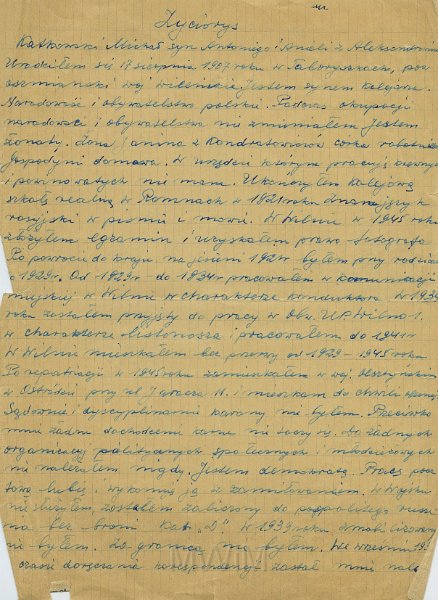 Życiorys
Katkowski Michał syn Antoniego i Anieli z Aleksandrowiczów
Urodziłem się 17 sierpnia 1907 roku w Taboryszkach, pow
oszmiański woj wileńskie jestem synem kolejarza.
Narodowość i obywatelstwo polskie. Podczas okupacji
narodowości i obywatelstwa nie zmieniałem. Jestem
żonaty. Żona Janina z Kondratowiczów córka robotnika
gospodyni domowa. W urzędzie którym pracuję krewnych
i powinowatych nie mam. Ukończyłem kolejową
szkołę realną w Romnach w 1921 roku znam język
rosyjski w piśmie i mowie. W Wilnie w 1945 roku
złożyłem egzamin i uzyskałem prawo fotografa
Po powrocie do kraju na jesieni 1921 r byłem przy rodzicach
do 1929 r. Od 1929 r do 1934 r pracowałem w komunikacji
miejskiej w Wilnie w charakterze konduktora w 1935
roku zostałem przyjęty do pracy w Obw. U.P. Wilno 1.
w charakterze listonosza i pracowałem do 1941 r
W Wilnie mieszkałem bez przerwy od 1929 - 1945 roku
Po repatriacji w 1945 roku zamieszkałem w woj. Olsztyńskim
w Ostródzie przy ul Jaracza 11. i mieszkam do chwili
Sądownie i dyscyplinarnie karany nie byłem. Przeciwko
mnie żadne dochodzenia karne nie toczyły. Do żadnych
organizacji politycznych społecznych i młodzieżowych
nie należałem nigdy. Jestem demokratą. Pracę pocz
tową lubię i wykonuję ją z zamiłowaniem. w Wojsku
nie służyłem, zostałem zaliczony do pospolitego rusze
nia bez broni kat „D". W 1939 roku zmobilizowany
nie byłem. Za granicą nie byłem. We wrześniu 19
czasie doręczania korespondencji zastał mnie nalo